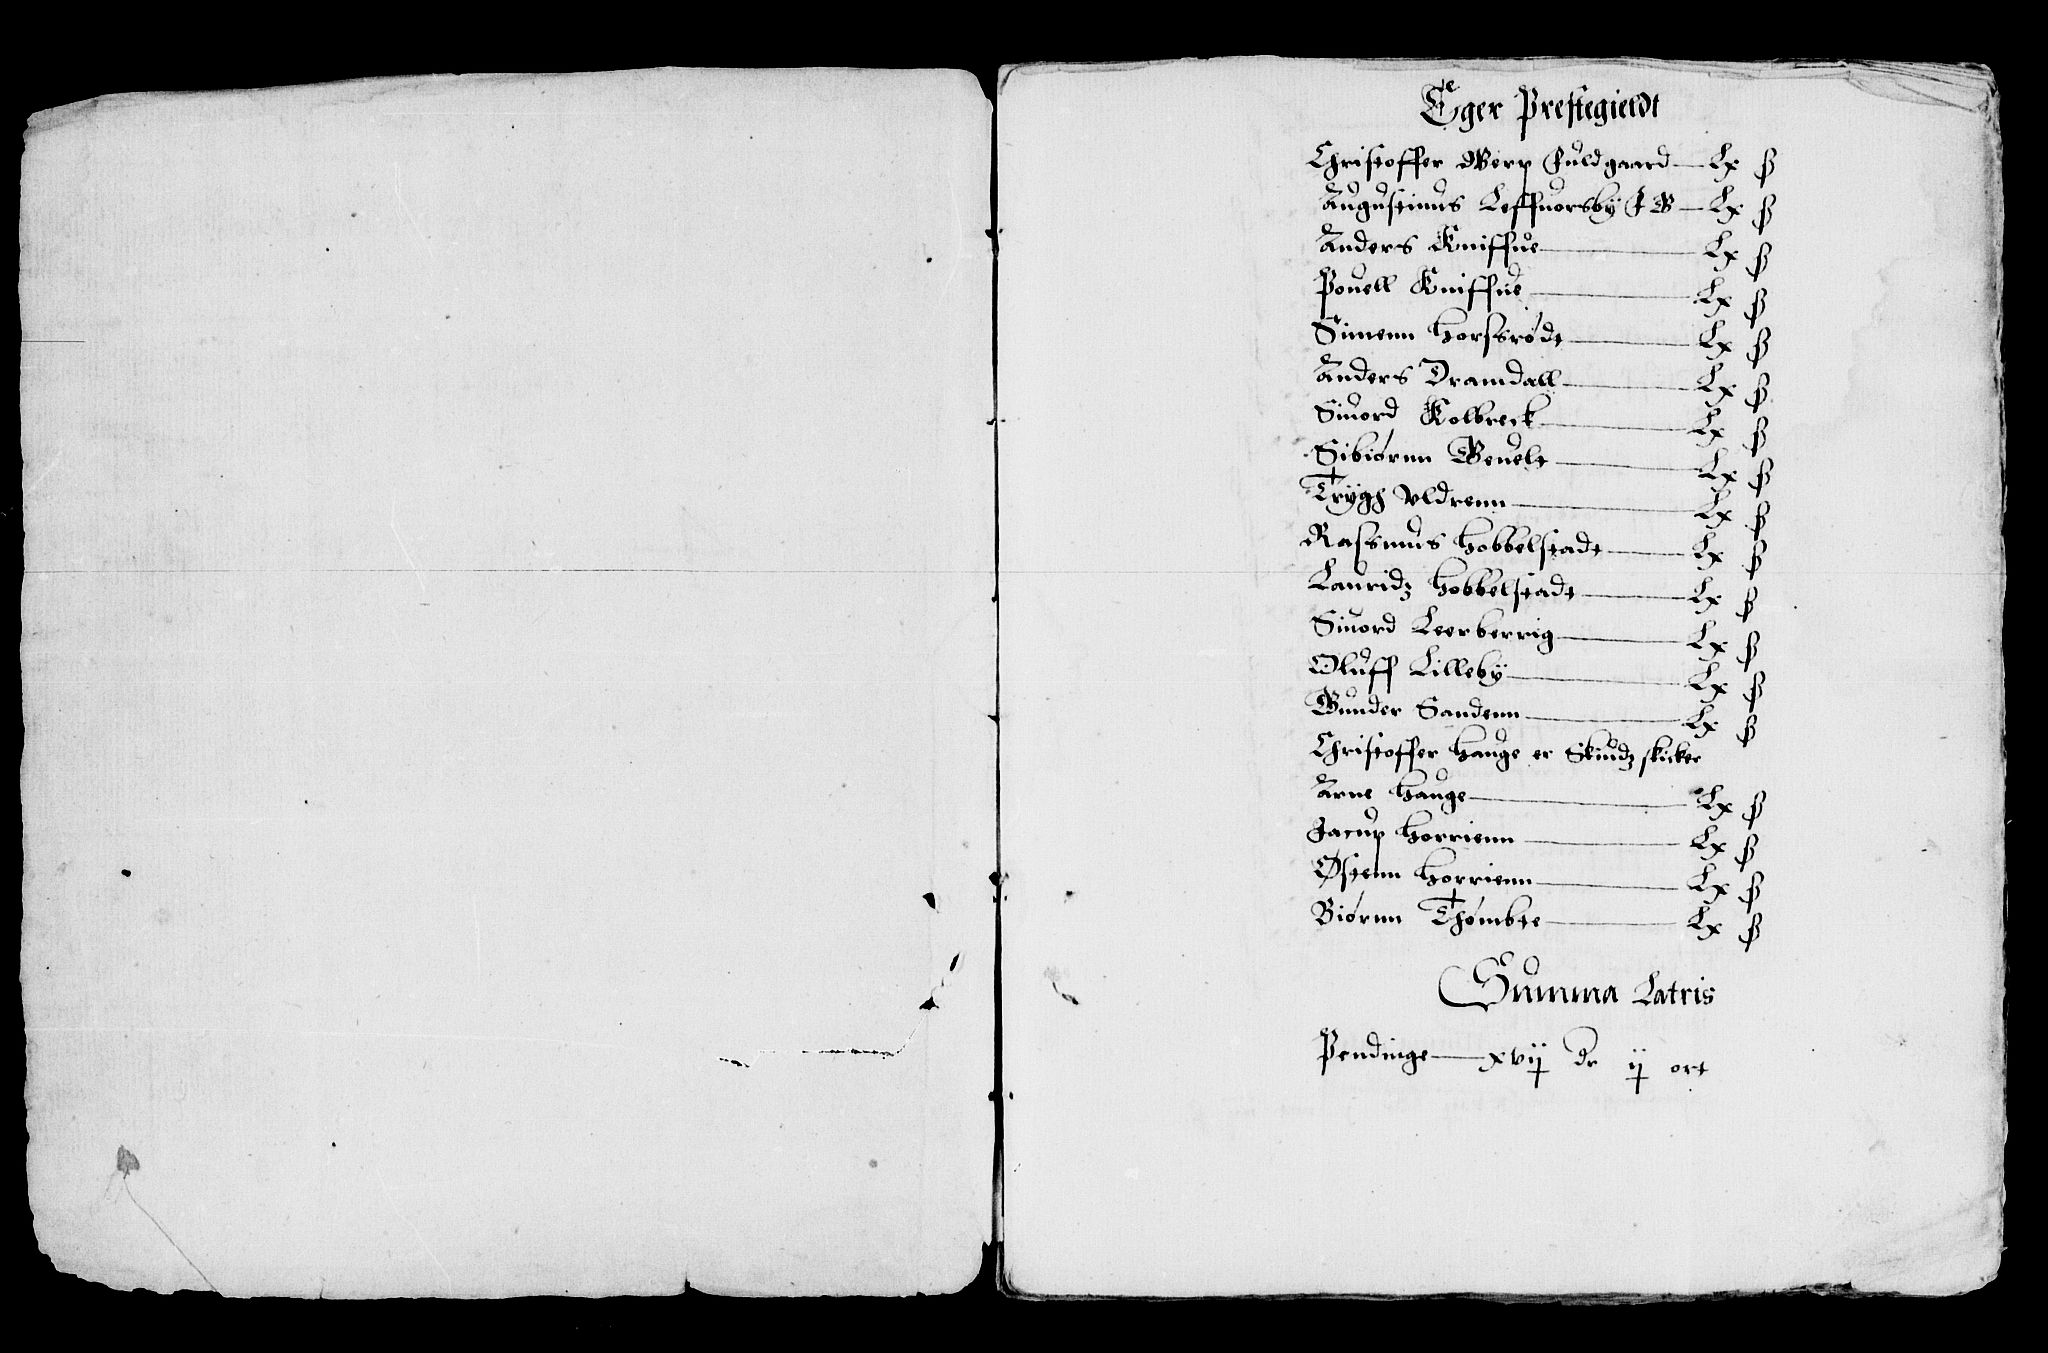 Eger Prestegieldt
Christoffer Werp fuldgaard — Lx ß
Augustinus Leffuorsby J G — Lx ß
Anders Kniffue — Lx ß
Pouell Kniffue — Lx ß
Simenn Horssrødt — Lx ß
Anders Dramdall — Lx ß
Siuord Kolbreck — Lx ß
Sibiørnn Beuelt — Lx ß
Trygh Vldrenn — Lx ß
Rassmus Hobbelstadt — Lx ß
Lauridz Hobbelstadt — Lx ß
Siuord Leerberrig — Lx ß
Oluff Lilleby — Lx ß
Gunder Sandenn — Lx ß
Christoffer Hauge er Skiudz skicker
Arne Hauge — Lx ß
Jacup Horrienn — Lx ß
Østenn Horrienn — Lx ß
Biørnn Thømbte — Lx ß
Summa Latris
Pendinge — xvij dr ij ort